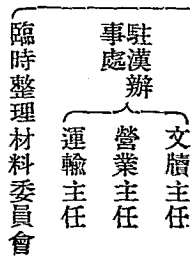 駐漢辦
事處
文牘主任
營業主任
運輸主任
臨時整理材料委員會